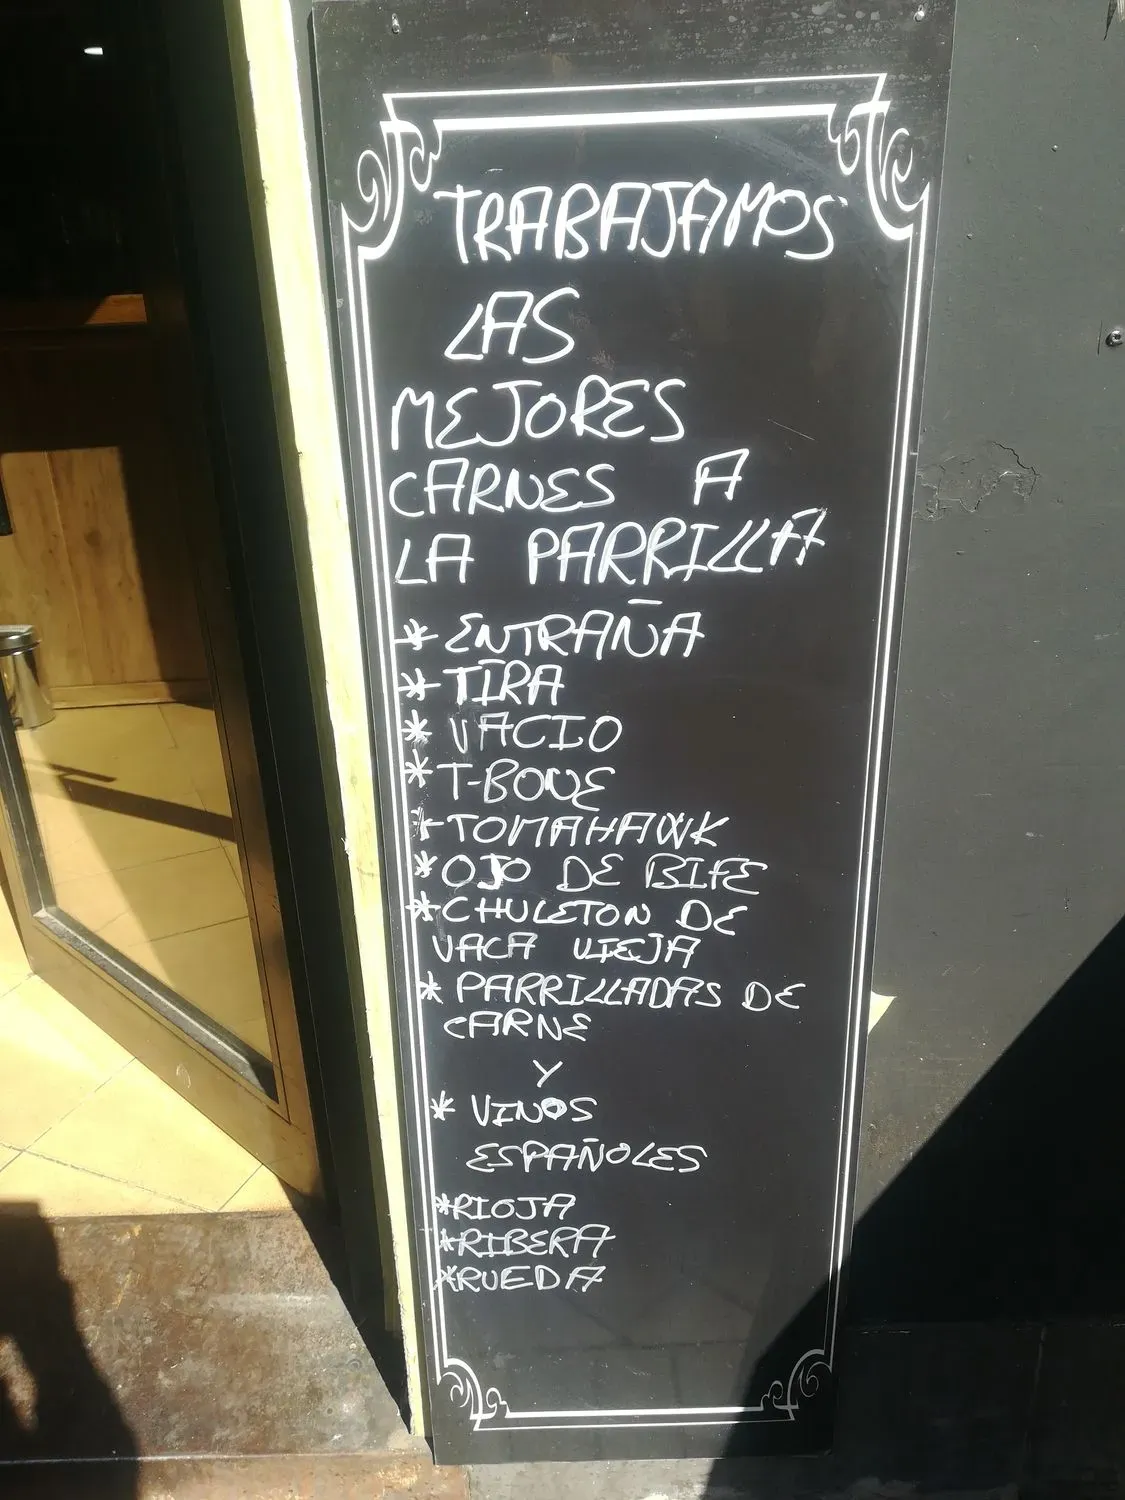 TRABAJAMOS
LAS
MEJORES
CARNES A
LA PARRILLA
* ENTRAÑA
* TIRA
* VACIO
* T-BONE
* TOMAHAWK
* OJO DE BIFE
* CHULETON DE
VACA VIEJA
* PARRILLADAS DE
CARNE
Y
* VINOS
ESPAÑOLES
* RIOJA
* RIBERA
* RUEDA